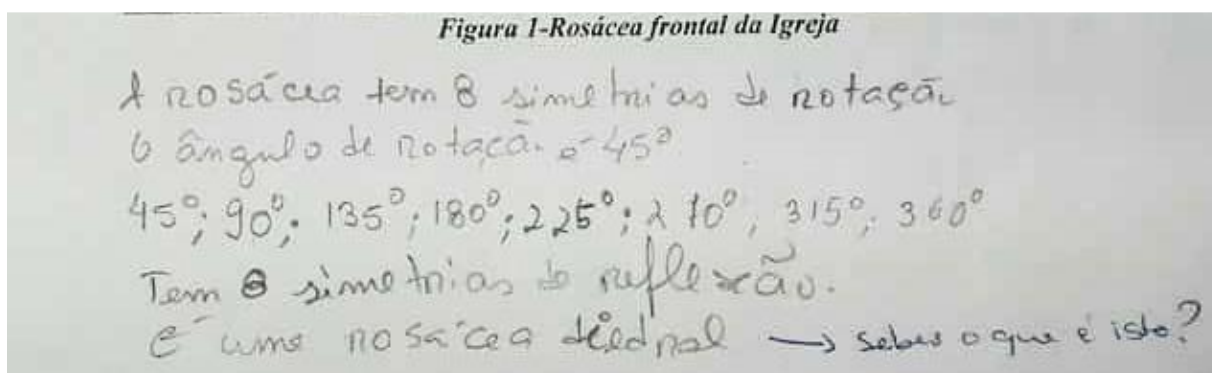 Figura 1-Rosácea frontal da Igreja
A rosácea tem 8 simetrias de rotação
O ângulo de rotação é 45º
45º; 90º; 135º; 180º; 225º; 270º, 315º; 360º
Tem 8 simetrias de reflexão.
É uma rosácea diedral → sabes o que é isto?